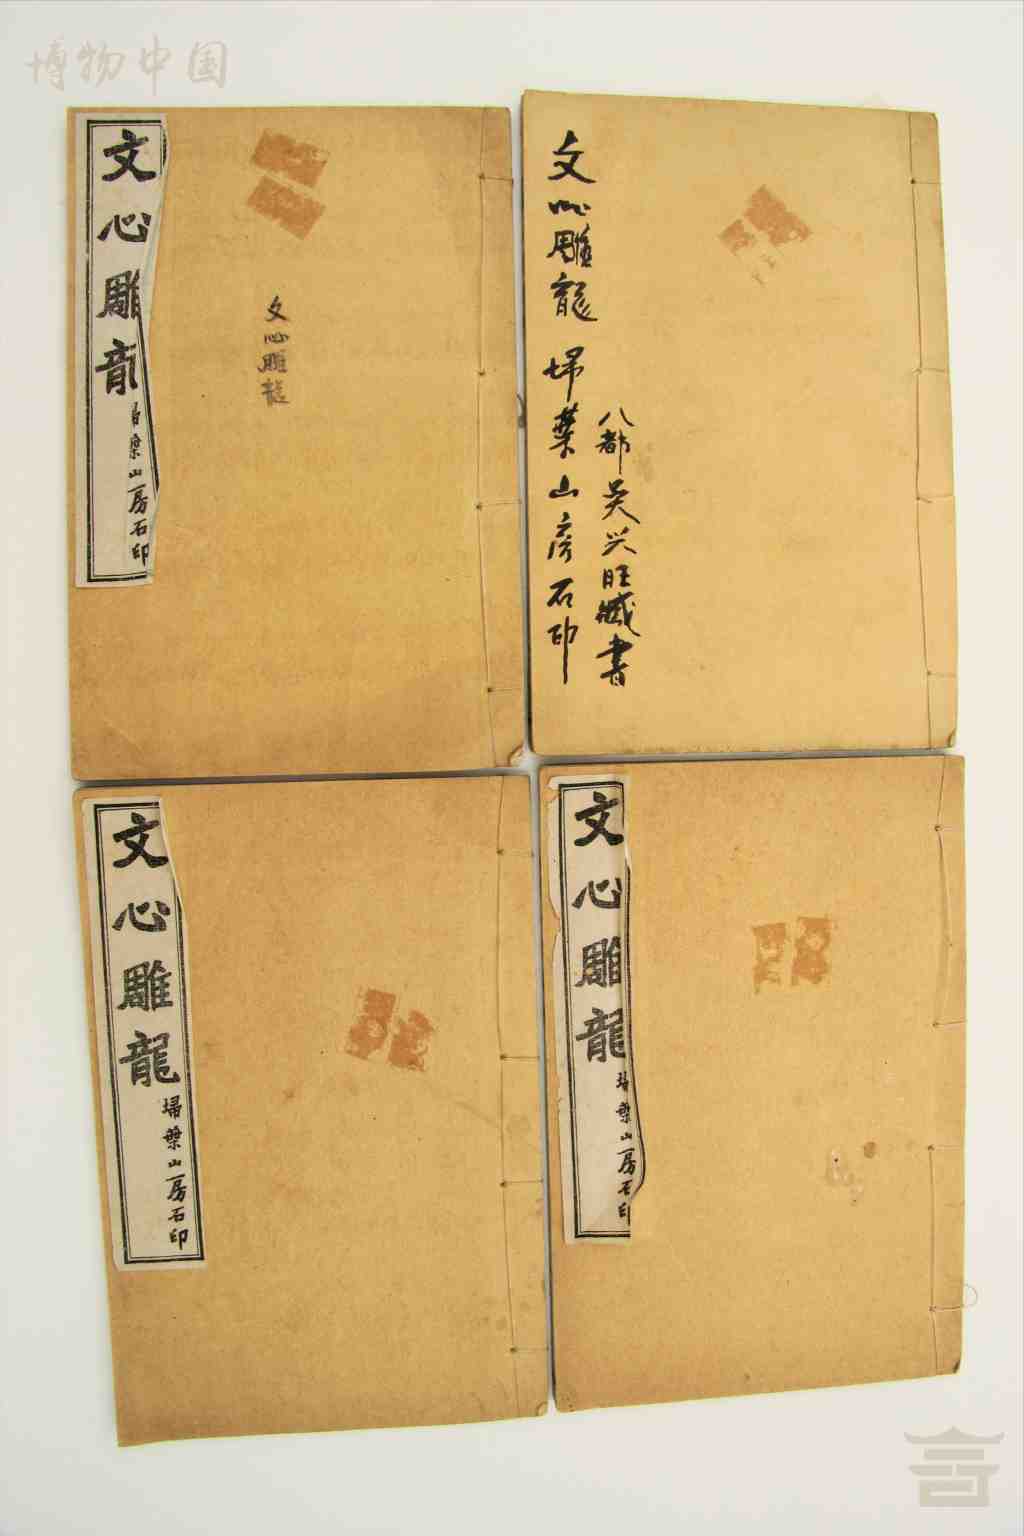 博物中国
文心雕龍
掃葉山房石印
文心雕龍
文心雕龍 掃葉山房石印
八都吴兴旺臧書
文心雕龍
掃葉山房石印
文心雕龍
掃葉山房石印